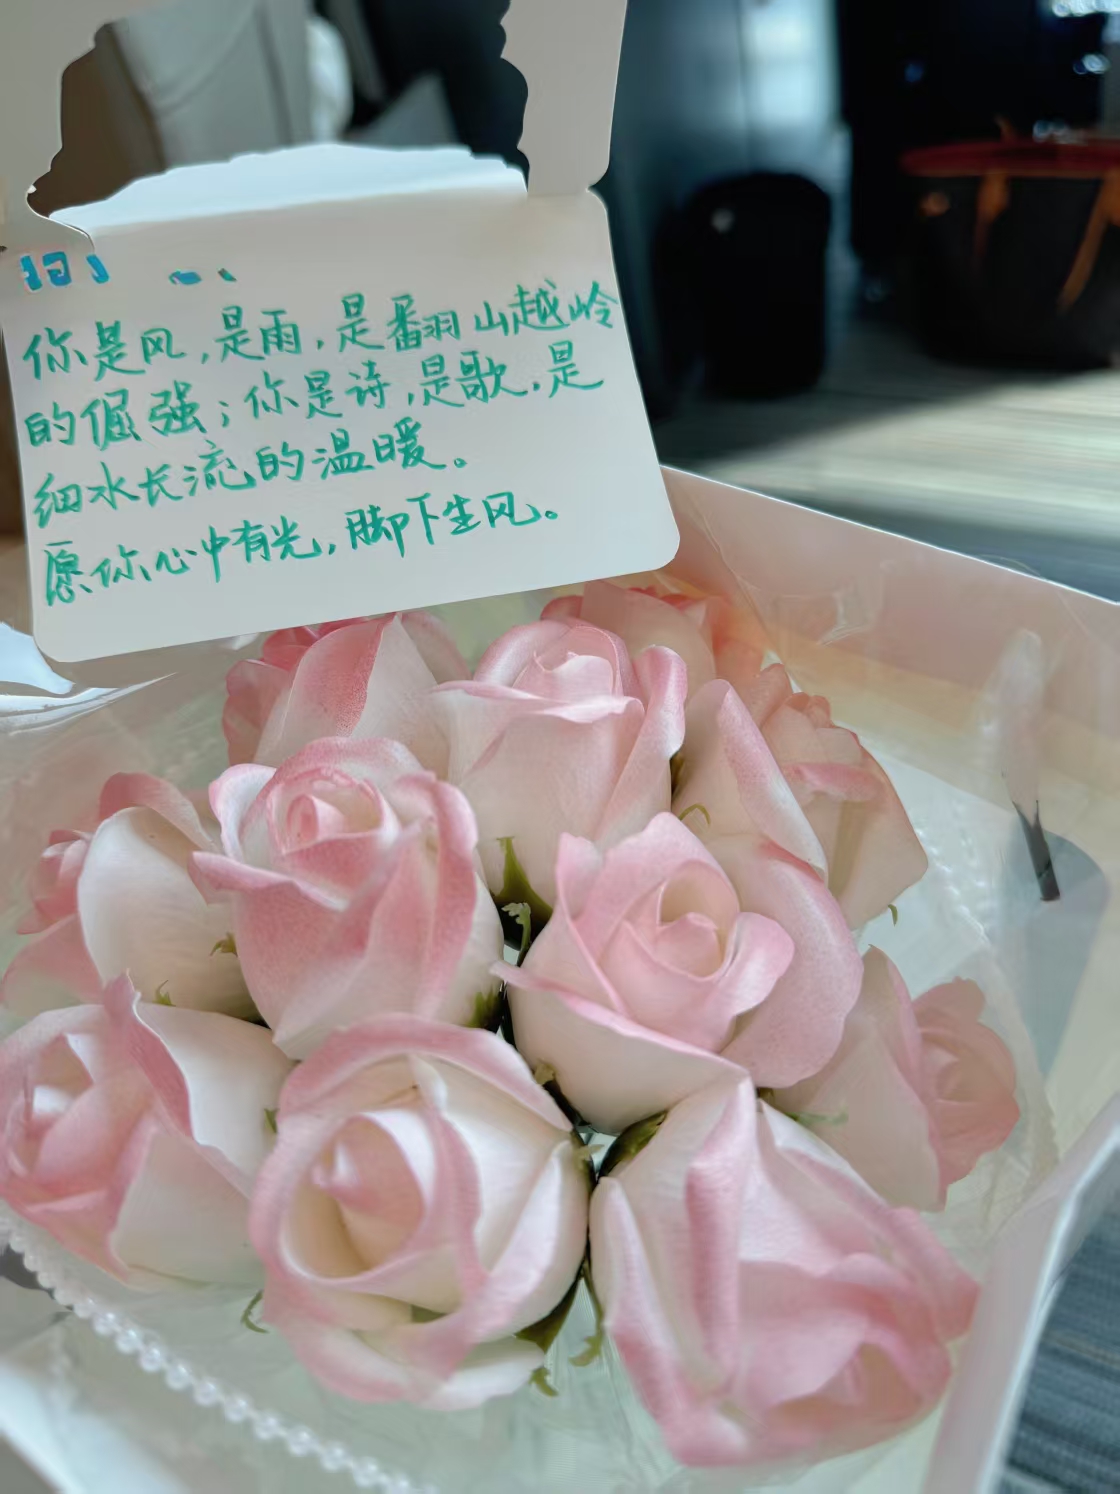 你是风,是雨,是翻山越岭
的倔强;你是诗,是歌,是
细水长流的温暖。
愿你心中有光,脚下生风。